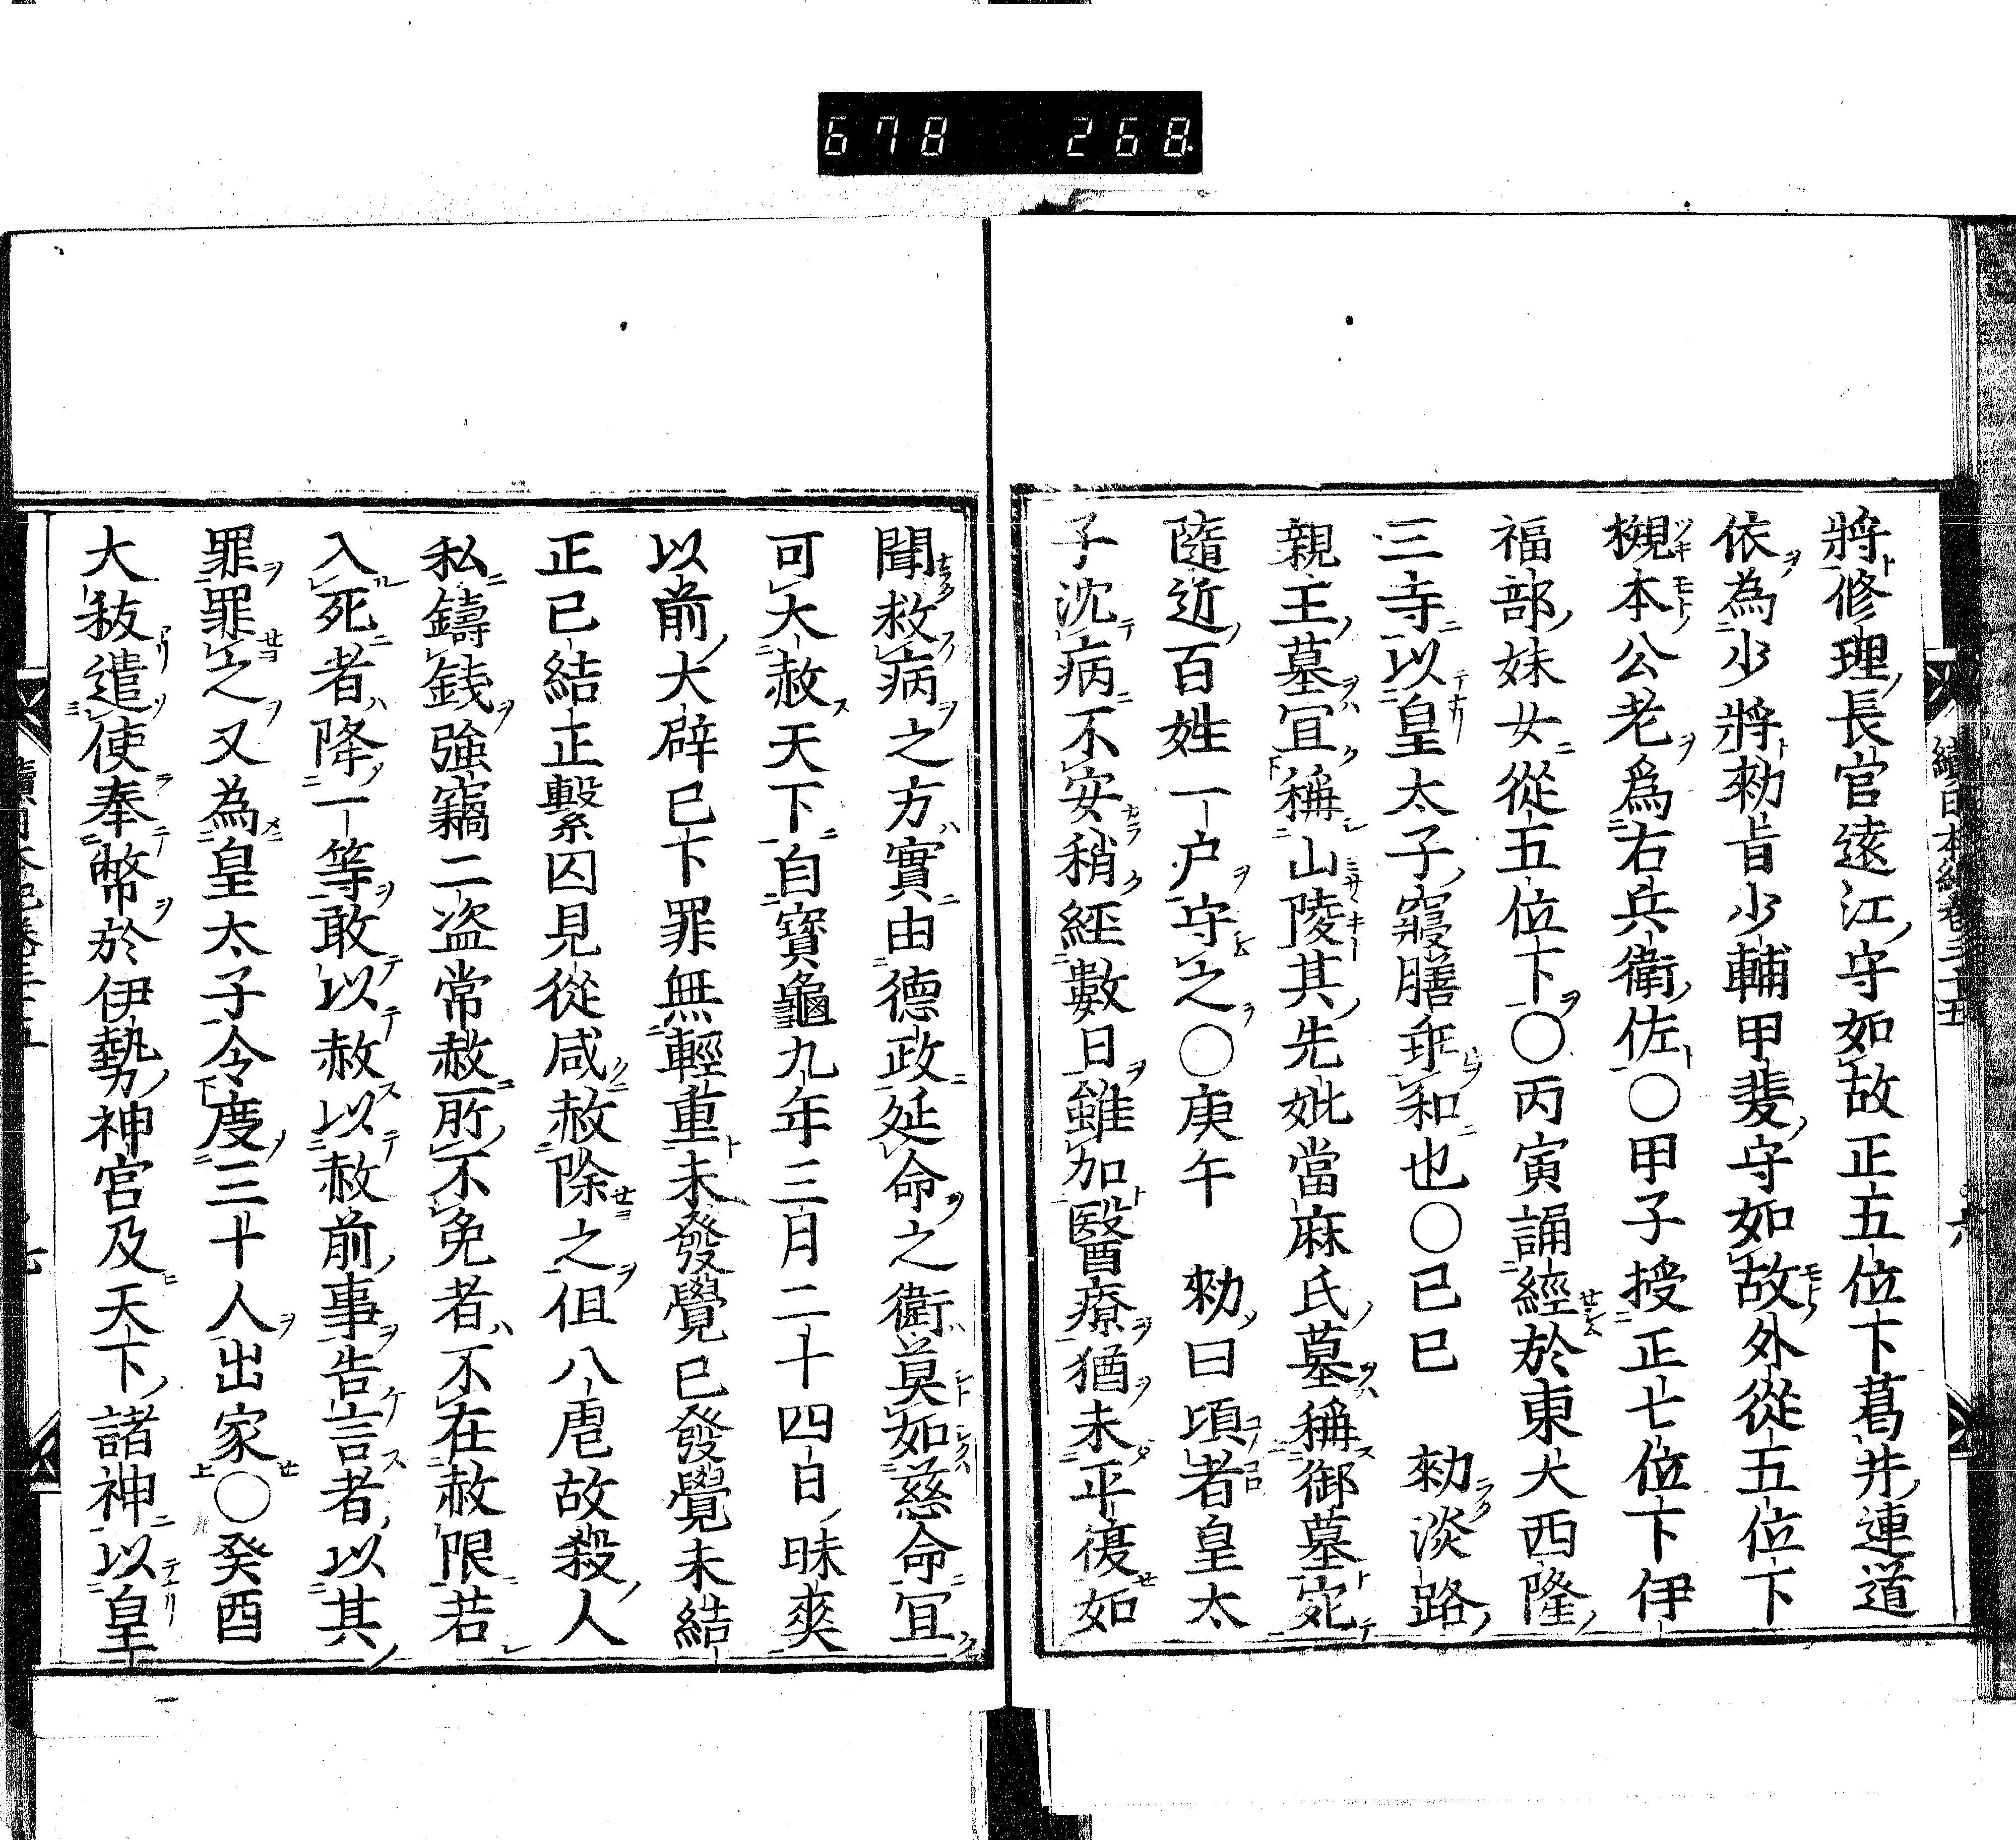 678 268
將修理長官遠江守如故正五位下葛井連道
依為少將勅旨少輔甲斐守如故外從五位下
槻本公老爲右兵衛佐○甲子授正七位下伊
福部妹女從五位下○丙寅誦經於東大西隆
三寺以皇太子寢膳乖和也○己巳 勅淡路
親王墓宜稱山陵其先妣當麻氏墓稱御墓宛
隨近百姓一戸守之○庚午 勅曰頃者皇太
子沈病不安稍經數日雖加醫療猶未平復如
聞救病之方實由德政延命之術莫如慈命宜
可大赦天下自寶龜九年三月二十四日昧爽
以前大辟已下罪無輕重未發覺已發覺未結
正已結正繫囚見從咸赦除之但八虐故殺人
私鑄錢強竊二盗常赦所不免者不在赦限若
入死者降一等敢以赦以赦前事告言者以其
罪罪之又為皇太子令度三十人出家○癸酉
大秡遣使奉幣於伊勢神宮及天下諸神以皇